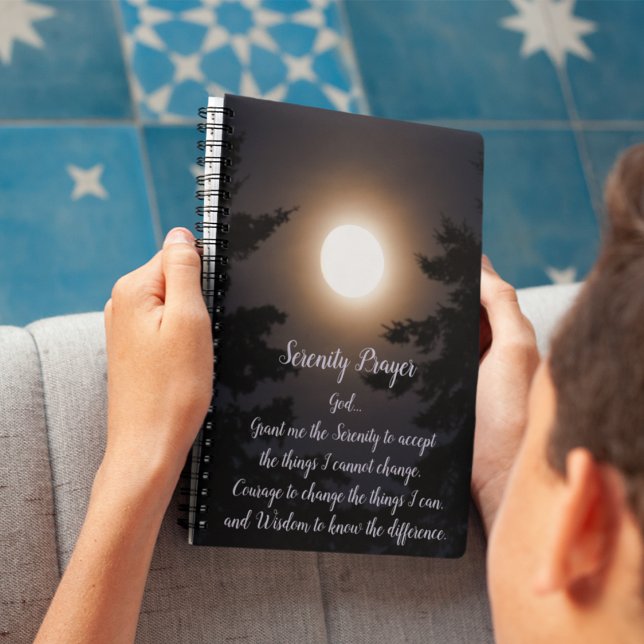 Serenity Prayer
God...
Grant me the Serenity to accept
the things I cannot change.
Courage to change the things I can.
and Wisdom to know the difference.